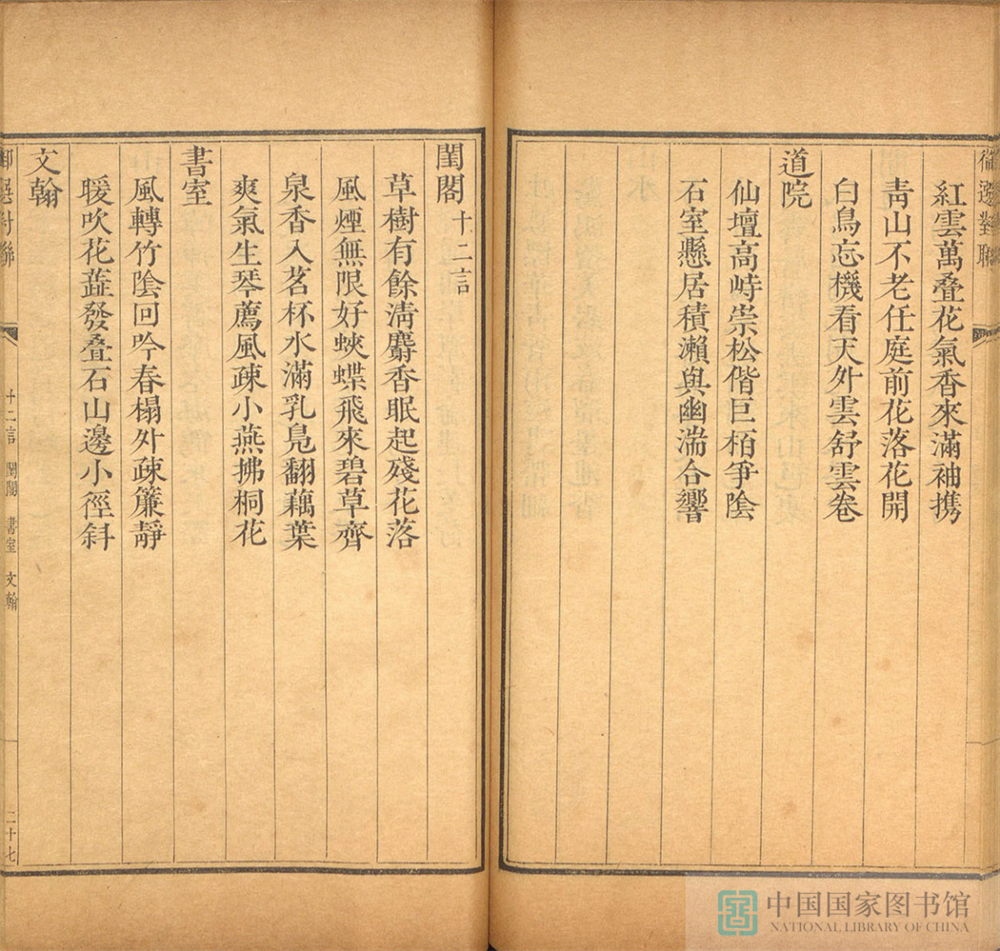 紅雲萬叠花氣香來滿袖携
青山不老任庭前花落花開
白鳥忘機看天外雲舒雲卷
道院
仙壇高峙崇松偕巨栢爭陰
石室懸居積瀨與幽湍合響
閨閣 十二言
草樹有餘淸麝香眠起殘花落
風煙無限好蛺蝶飛來碧草齊
泉香入茗杯水滿乳鳧翻藕葉
爽氣生琴薦風疎小燕拂桐花
書室
風轉竹陰回吟春榻外疎簾靜
暖吹花蘂發叠石山邊小徑斜
文翰
十二言 閨閣 書室 文翰
二十七
中国国家图书馆
NATIONAL LIBRARY OF CHINA